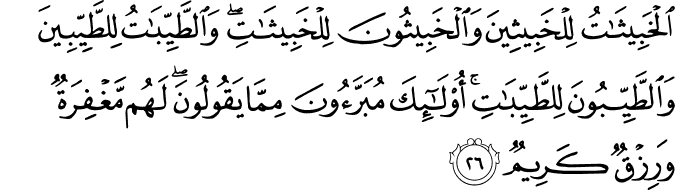 ٱلْخَبِيثَـٰتُ لِلْخَبِيثِينَ وَٱلْخَبِيثُونَ لِلْخَبِيثَـٰتِ ۖ وَٱلطَّيِّبَـٰتُ لِلطَّيِّبِينَ
وَٱلطَّيِّبُونَ لِلطَّيِّبَـٰتِ ۚ أُو۟لَـٰٓئِكَ مُبَرَّءُونَ مِمَّا يَقُولُونَ ۖ لَهُم مَّغْفِرَةٌ
وَرِزْقٌ كَرِيمٌ ٢٦